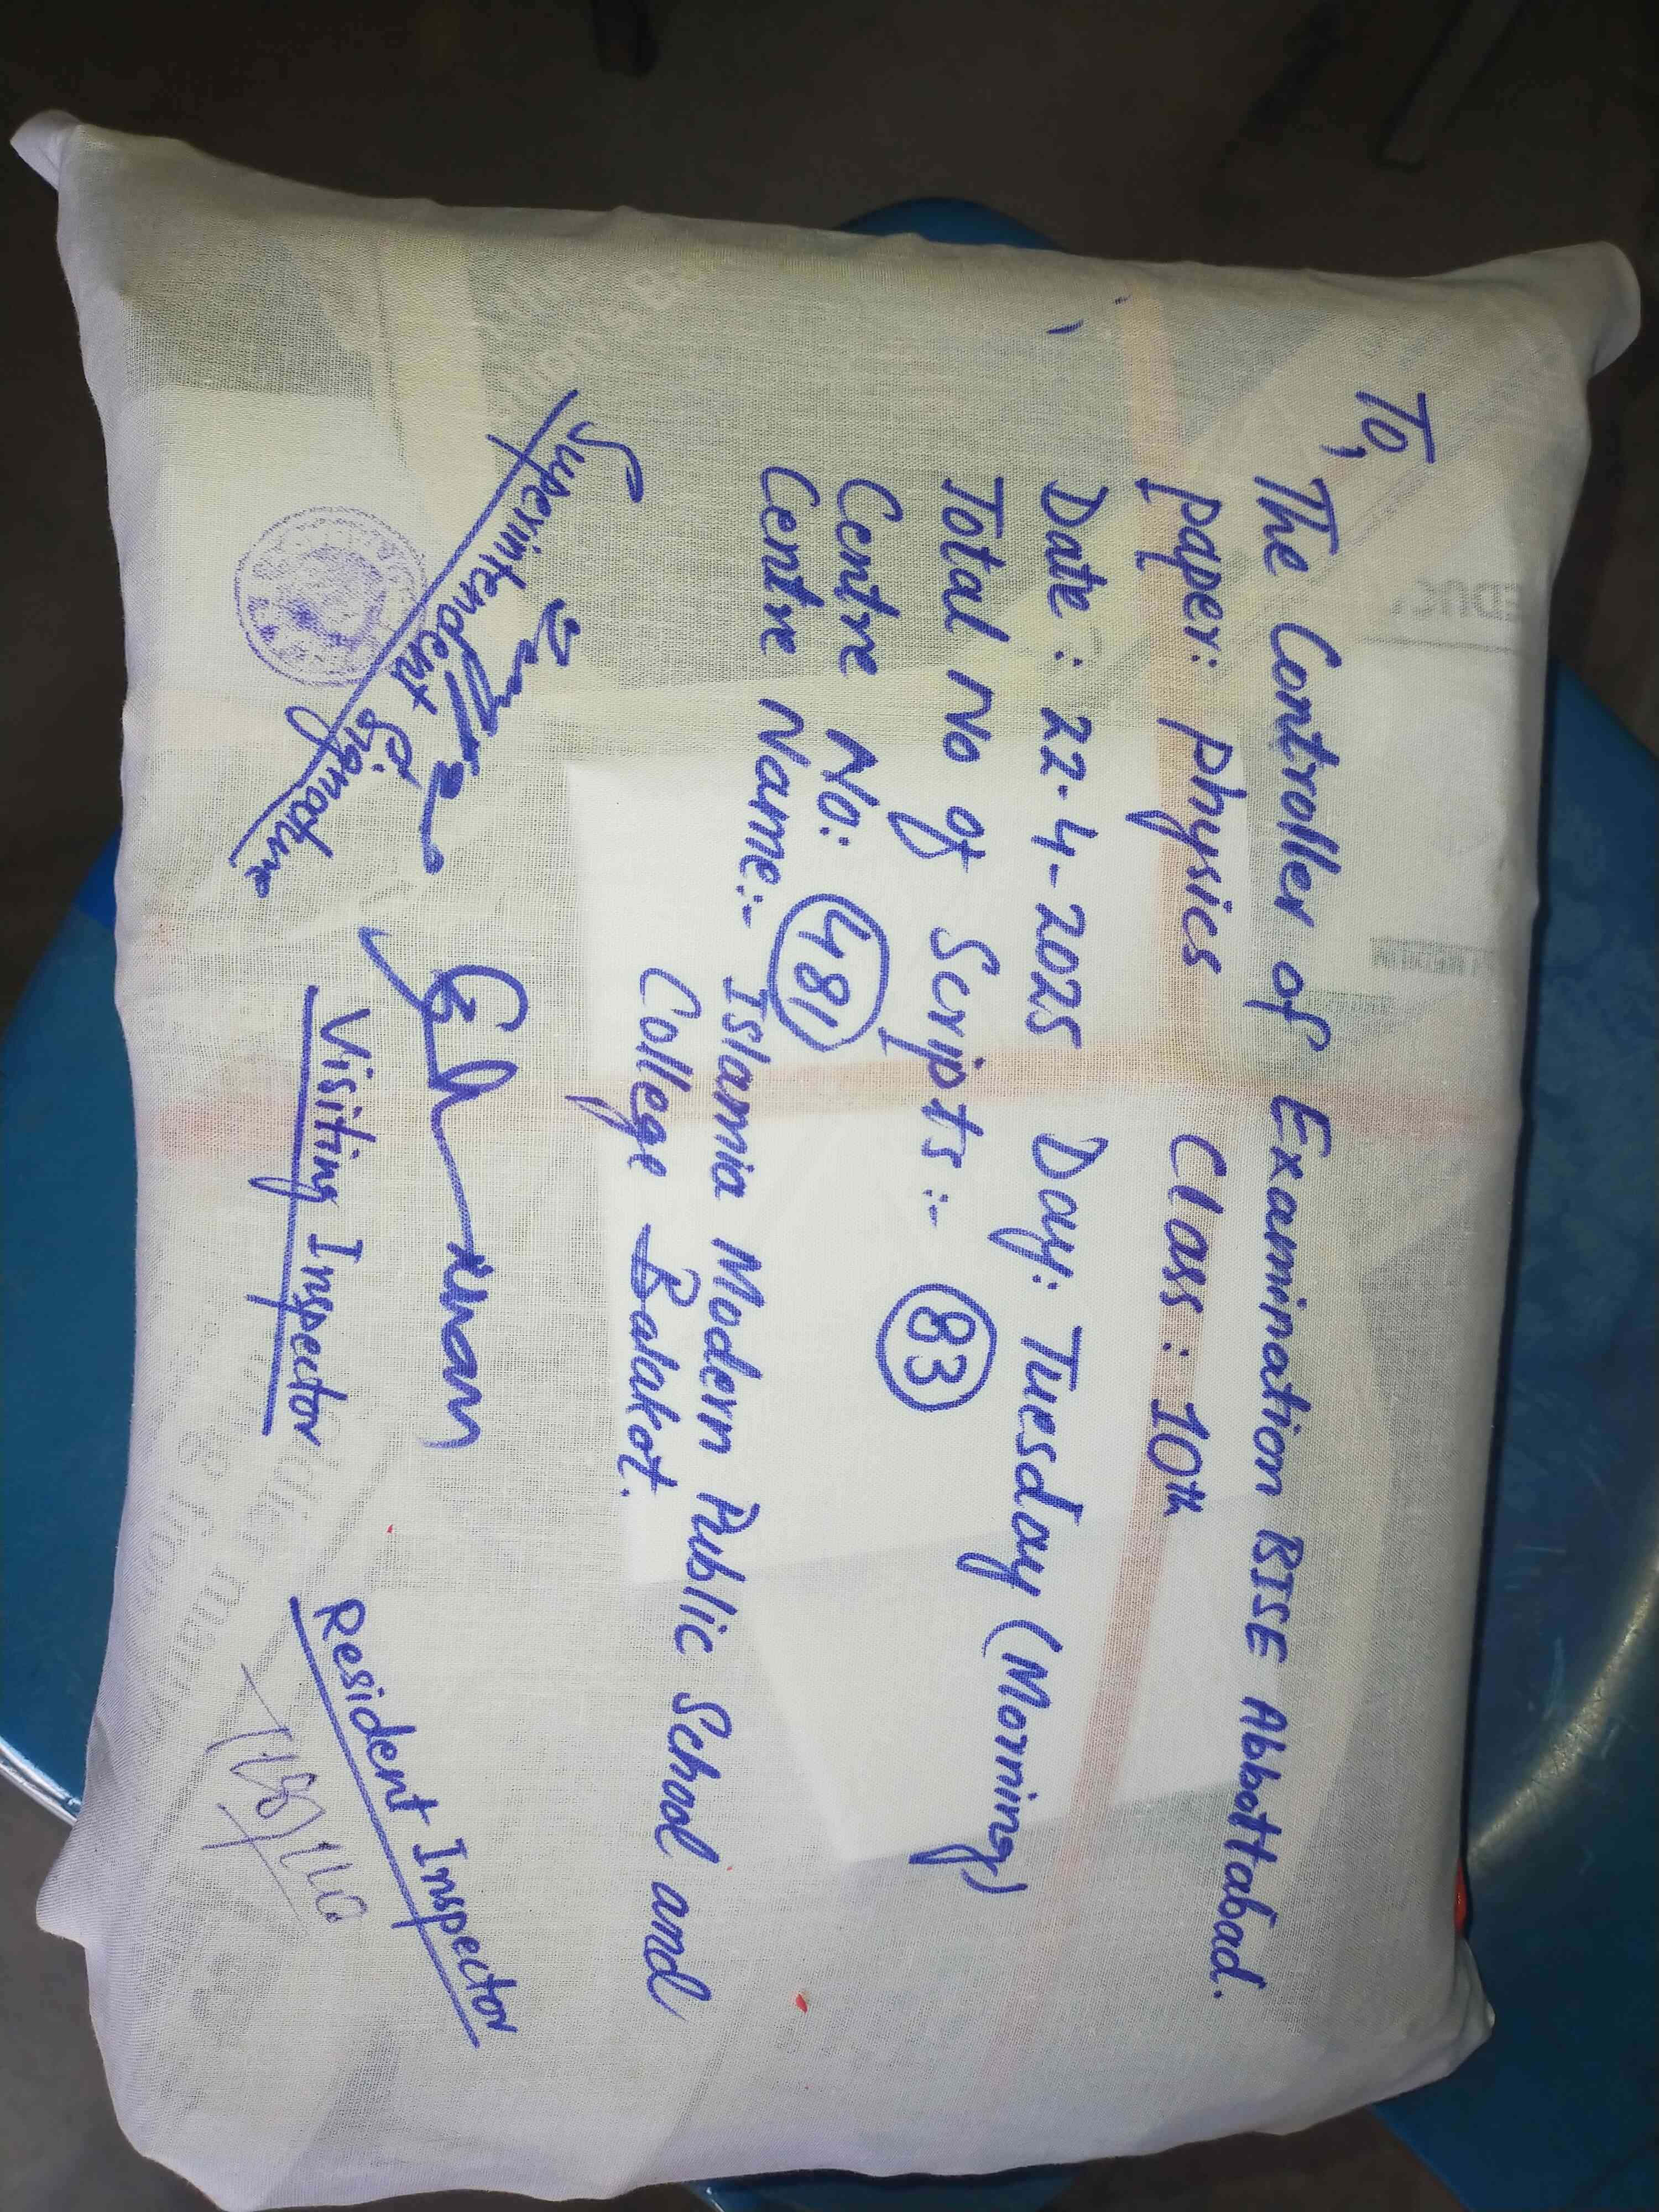 To,
The Controller of Examination BISE Abbottabad.
paper: physics Class: 10th
Date: 22-4-2025 Day: Tuesday (Morning)
Total No of Scripts:- 83
Centre No: 481
Centre Name:- Islamia Modern Public School and
College Balakot.
Superintendent Signature
Visiting Inspector
Resident Inspector